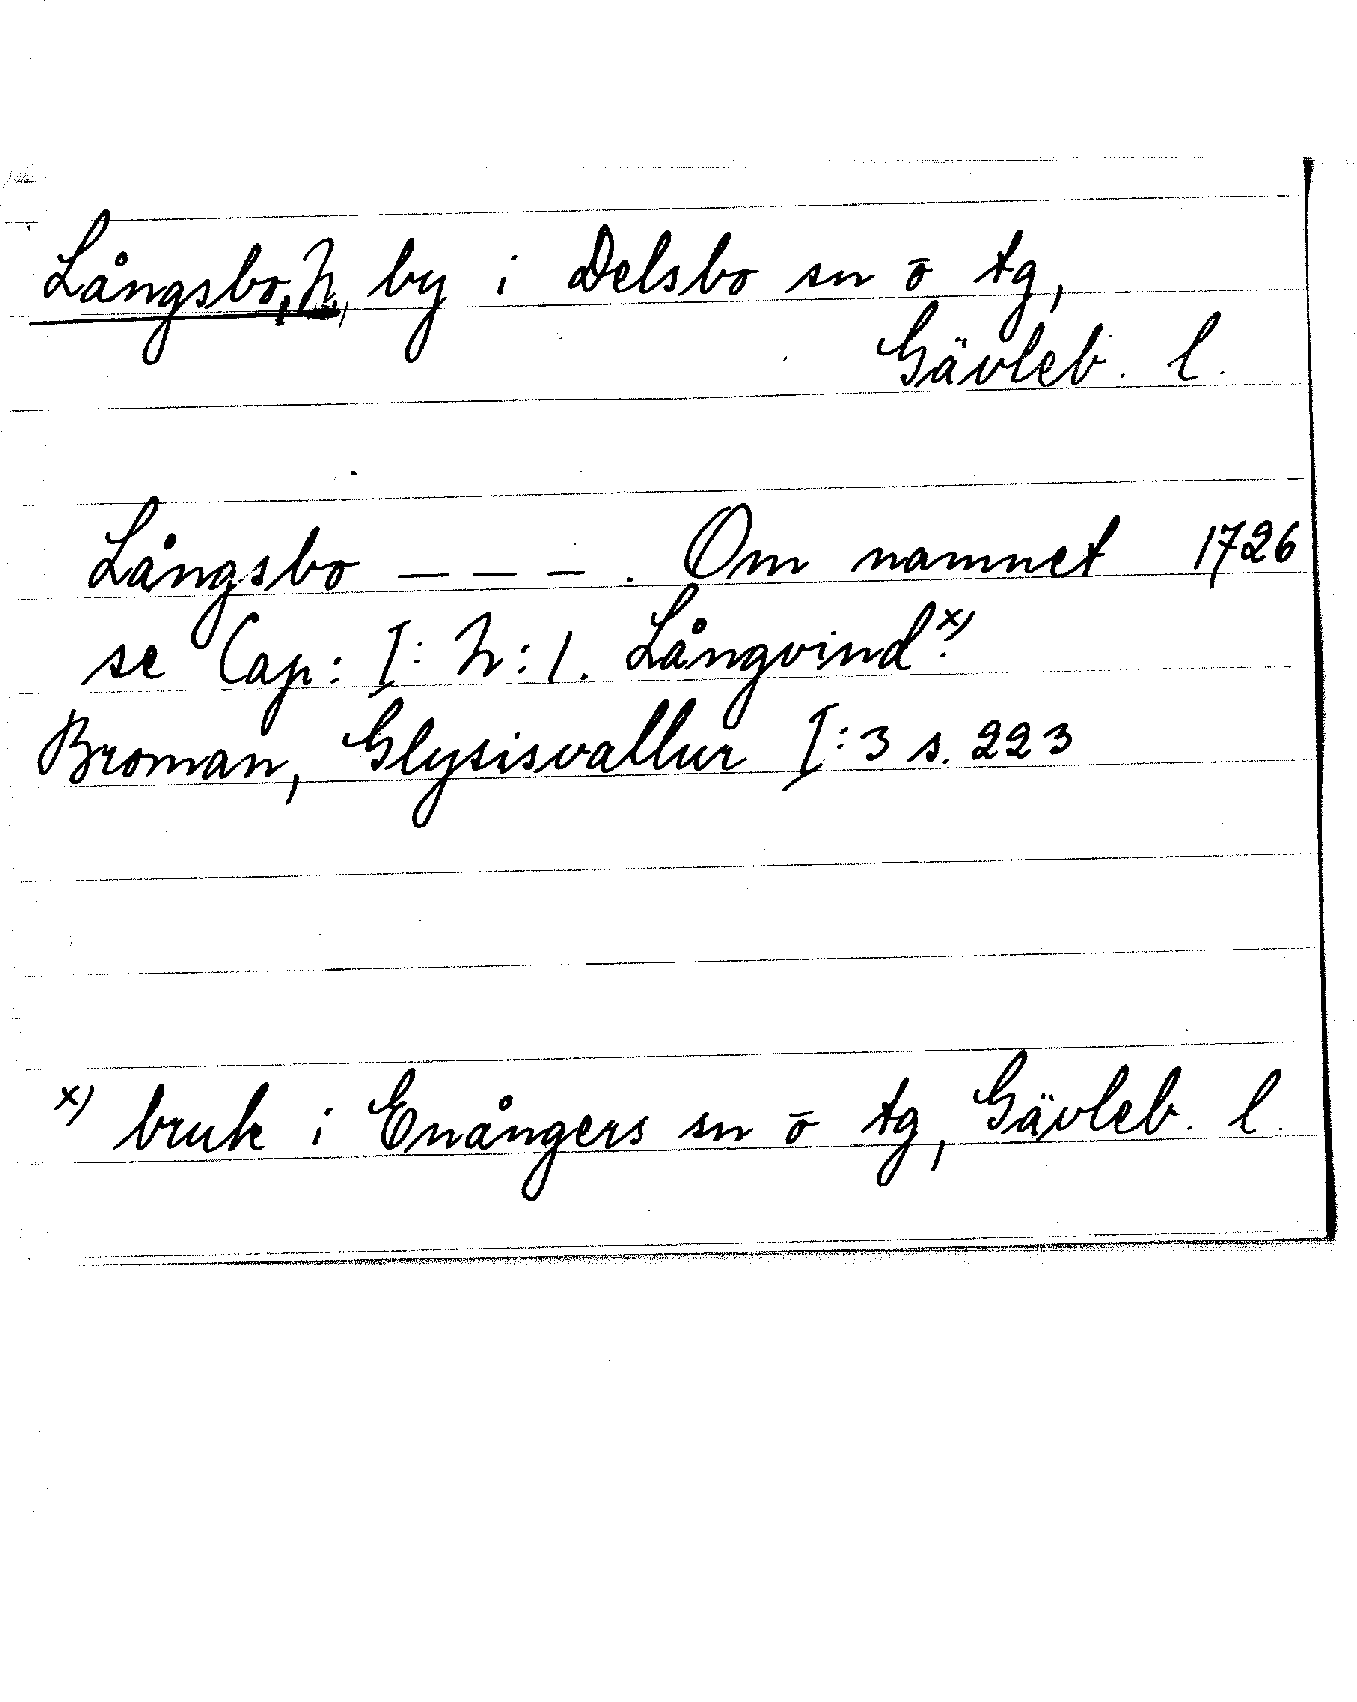 Långsbo, N, by i Delsbo sn o tg,
Gävleb. l.
Långsbo – – – . Om namnet 1726
se Cap: I: N: 1. Långvind x).
Broman, Glysisvallur I:3 s. 223
x) bruk i Enångers sn o tg, Gävleb. l.